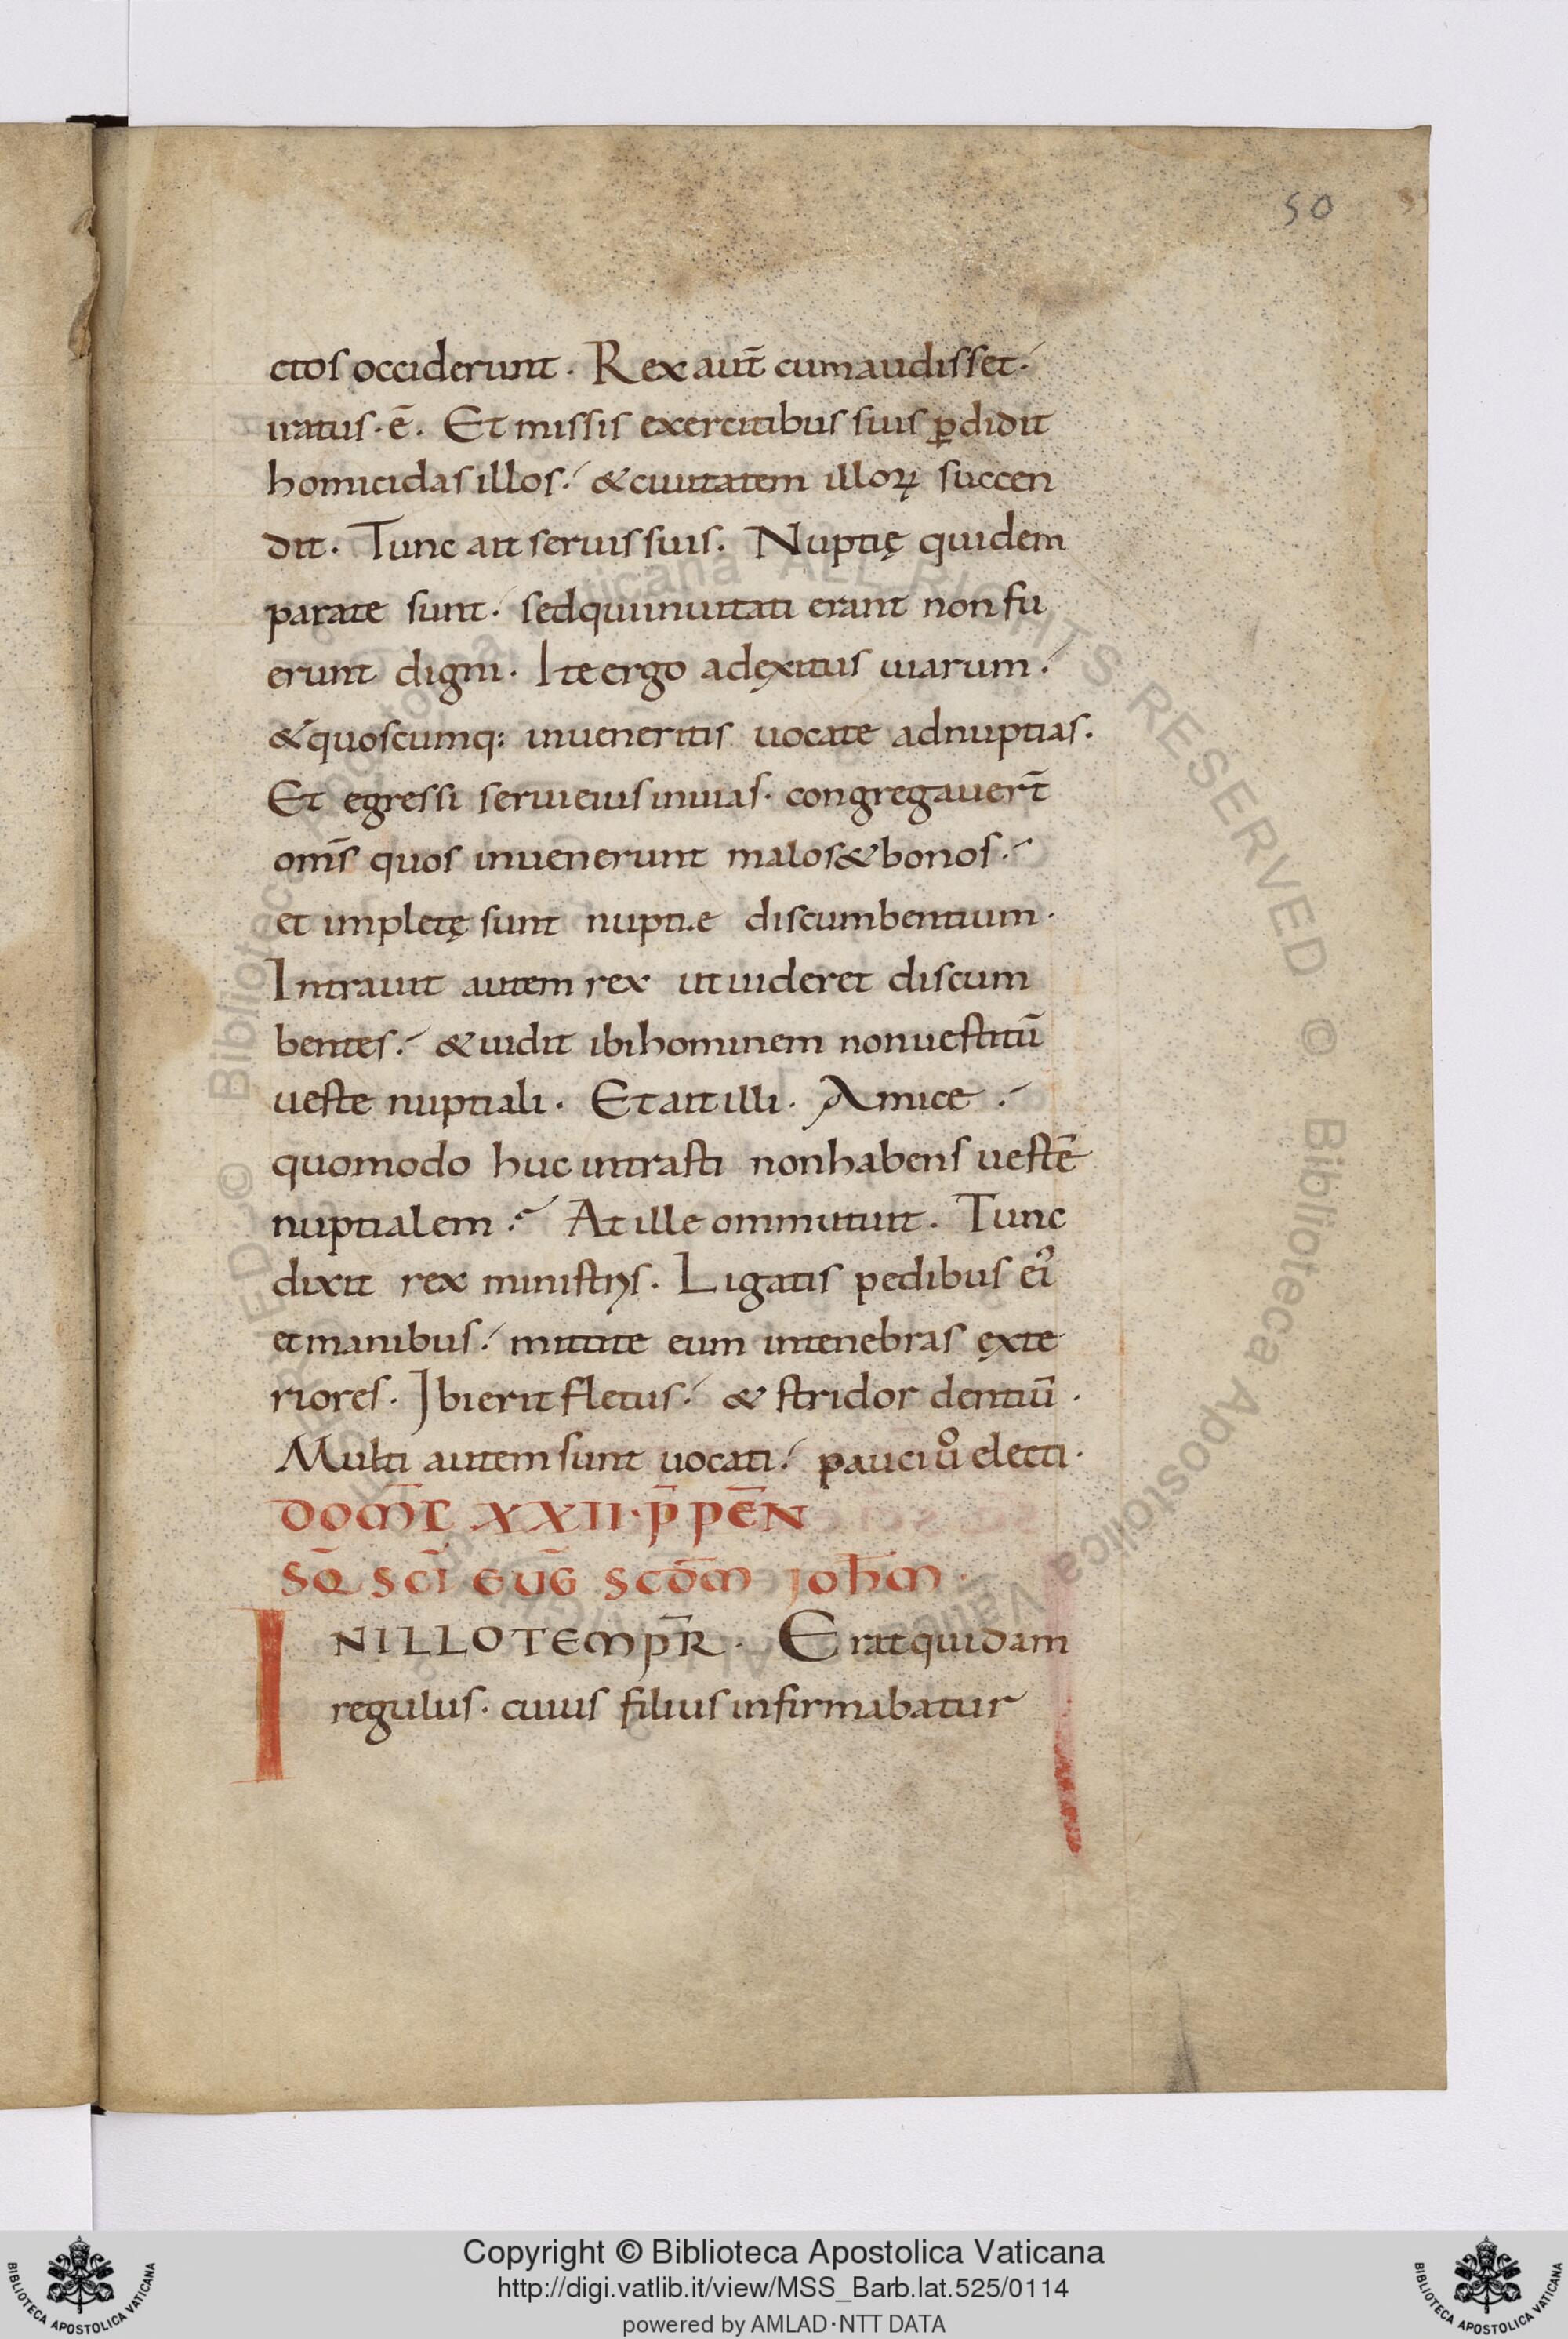 50
ctos occiderunt. Rex aut̄ cum audisset.
iratus. ē. Et missis exercitibus suis ꝑdidit
homicidas illos. & ciuitatem illoꝝ succen
dit. Tunc ait seruis suis. Nuptię quidem
parate sunt. sed qui inuitati erant non fu
erunt digni. Ite ergo ad ęxitus uiarum.
& quoscumq: inueneritis uocate ad nuptias.
Et egressi serui eius in uias. congregauer̄t
om̄s quos inuenerunt malos & bonos.
et impletę sunt nuptie discumbentium.
Intrauit autem rex ut uideret discum
bentes. & uidit ibi hominem non uestitū
ueste nuptiali. Et ait illi. Amice.
quomodo huc intrasti non habens uestē
nuptialem? At ille ommutuit. Tunc
dixit rex ministrıs. Ligatis pedibus ei᾽
et manibus. mittite eum in tenebras ęxte
riores. Ibi erit fletus. & stridor dentiū.
Multi autem sunt uocati. pauci uͦ electi.
DOM̄C XXII. P̄ PEN̄
SQ̄ SC̄I EUḠ SCDM̄ IOH̄M
IN ILLO TEMPR̄. Erat quidam
regulus. cuius filius infirmabatur
Copyright © Biblioteca Apostolica Vaticana
http://digi.vatlib.it/view/MSS_Barb.lat.525/0114
powered by AMLAD·NTT DATA